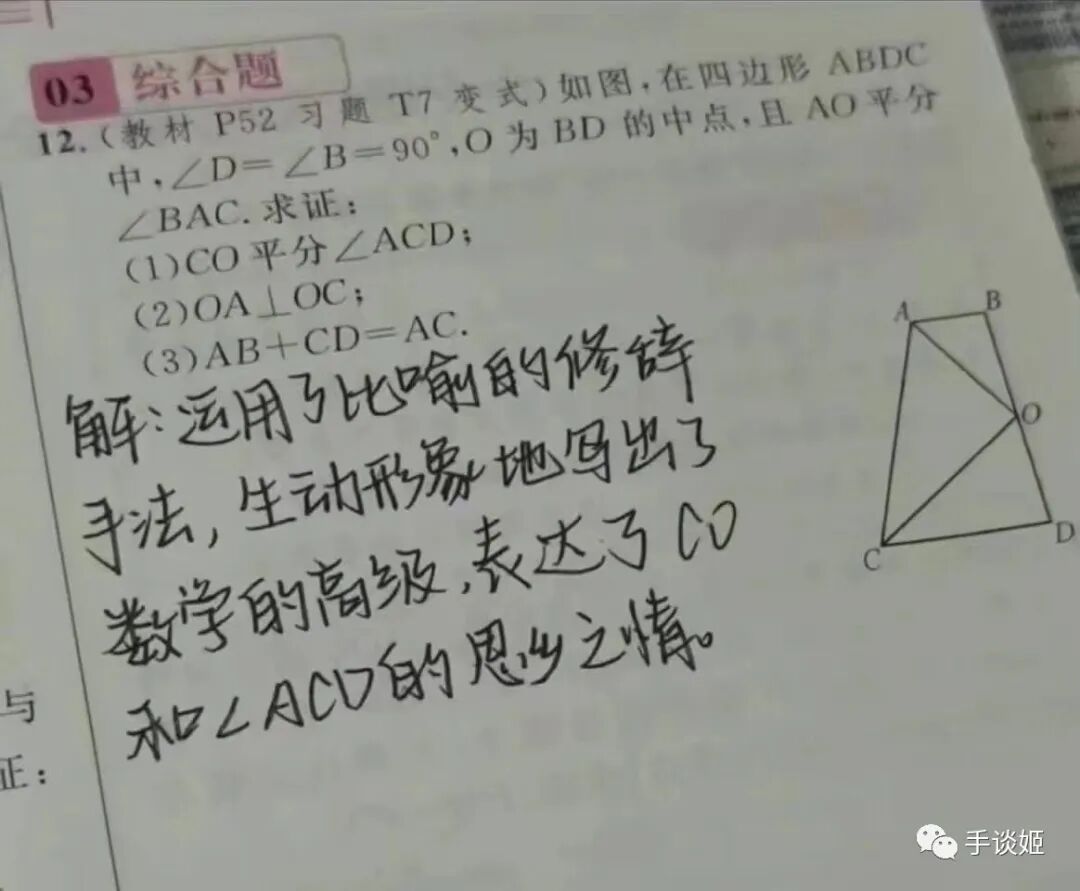 03 综合题
12.(教材 P52 习题 T7 变式)如图,在四边形 ABDC
中,∠D=∠B=90°,O 为 BD 的中点,且 AO 平分
∠BAC.求证:
(1)CO 平分∠ACD;
(2)OA⊥OC;
(3)AB+CD=AC.
解:运用了比喻的修辞
手法,生动形象地写出了
数学的高级,表达了CO
和∠ACD的思乡之情。
A
B
O
C
D
与
证:
手谈姬